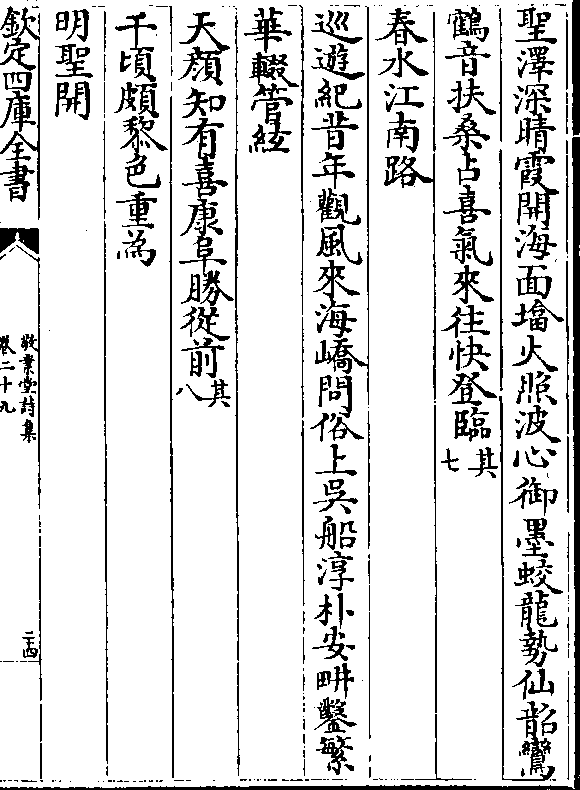 聖澤深晴霞開海面墖火照波心御墨蛟龍勢仙韶鸞
鶴音扶桑占喜氣來往快登臨其七
春水江南路
巡遊紀昔年觀風來海嶠問俗上吳船淳朴安畊鑿繁
華輟管絃
天顔知有喜康阜勝從前其八
千頃頗黎色重為
明聖開
欽定四庫全書
敬業堂詩集
卷二十九
二十四